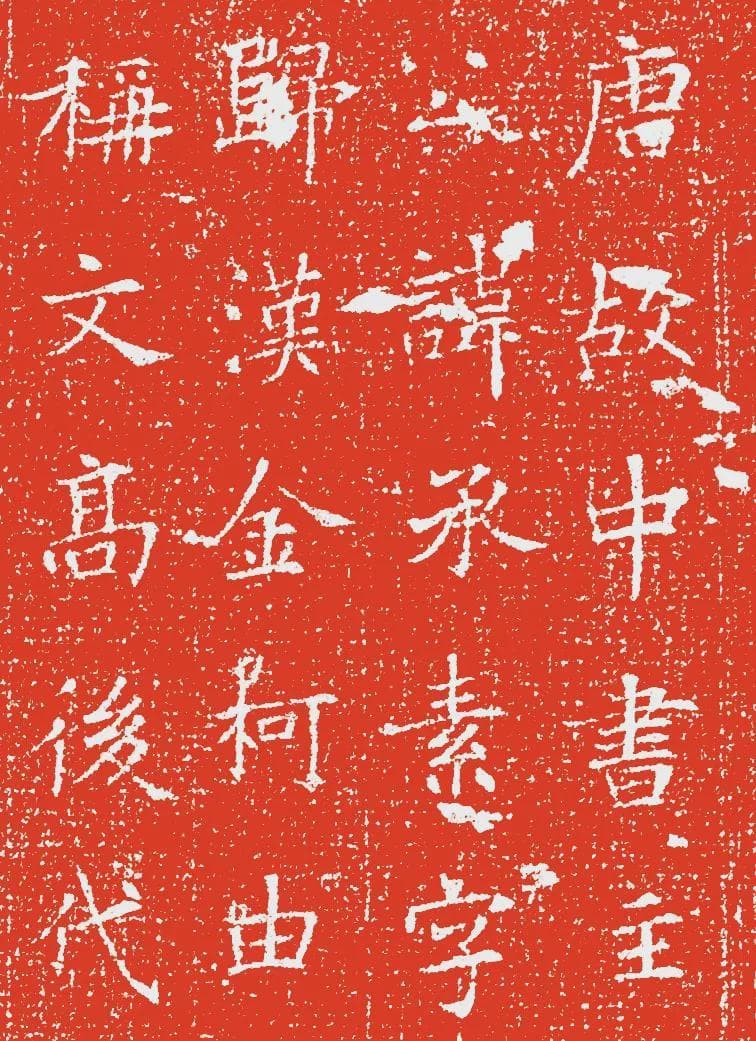 唐故中書主
公諱承素字
歸漢金柯由
稱文髙後代